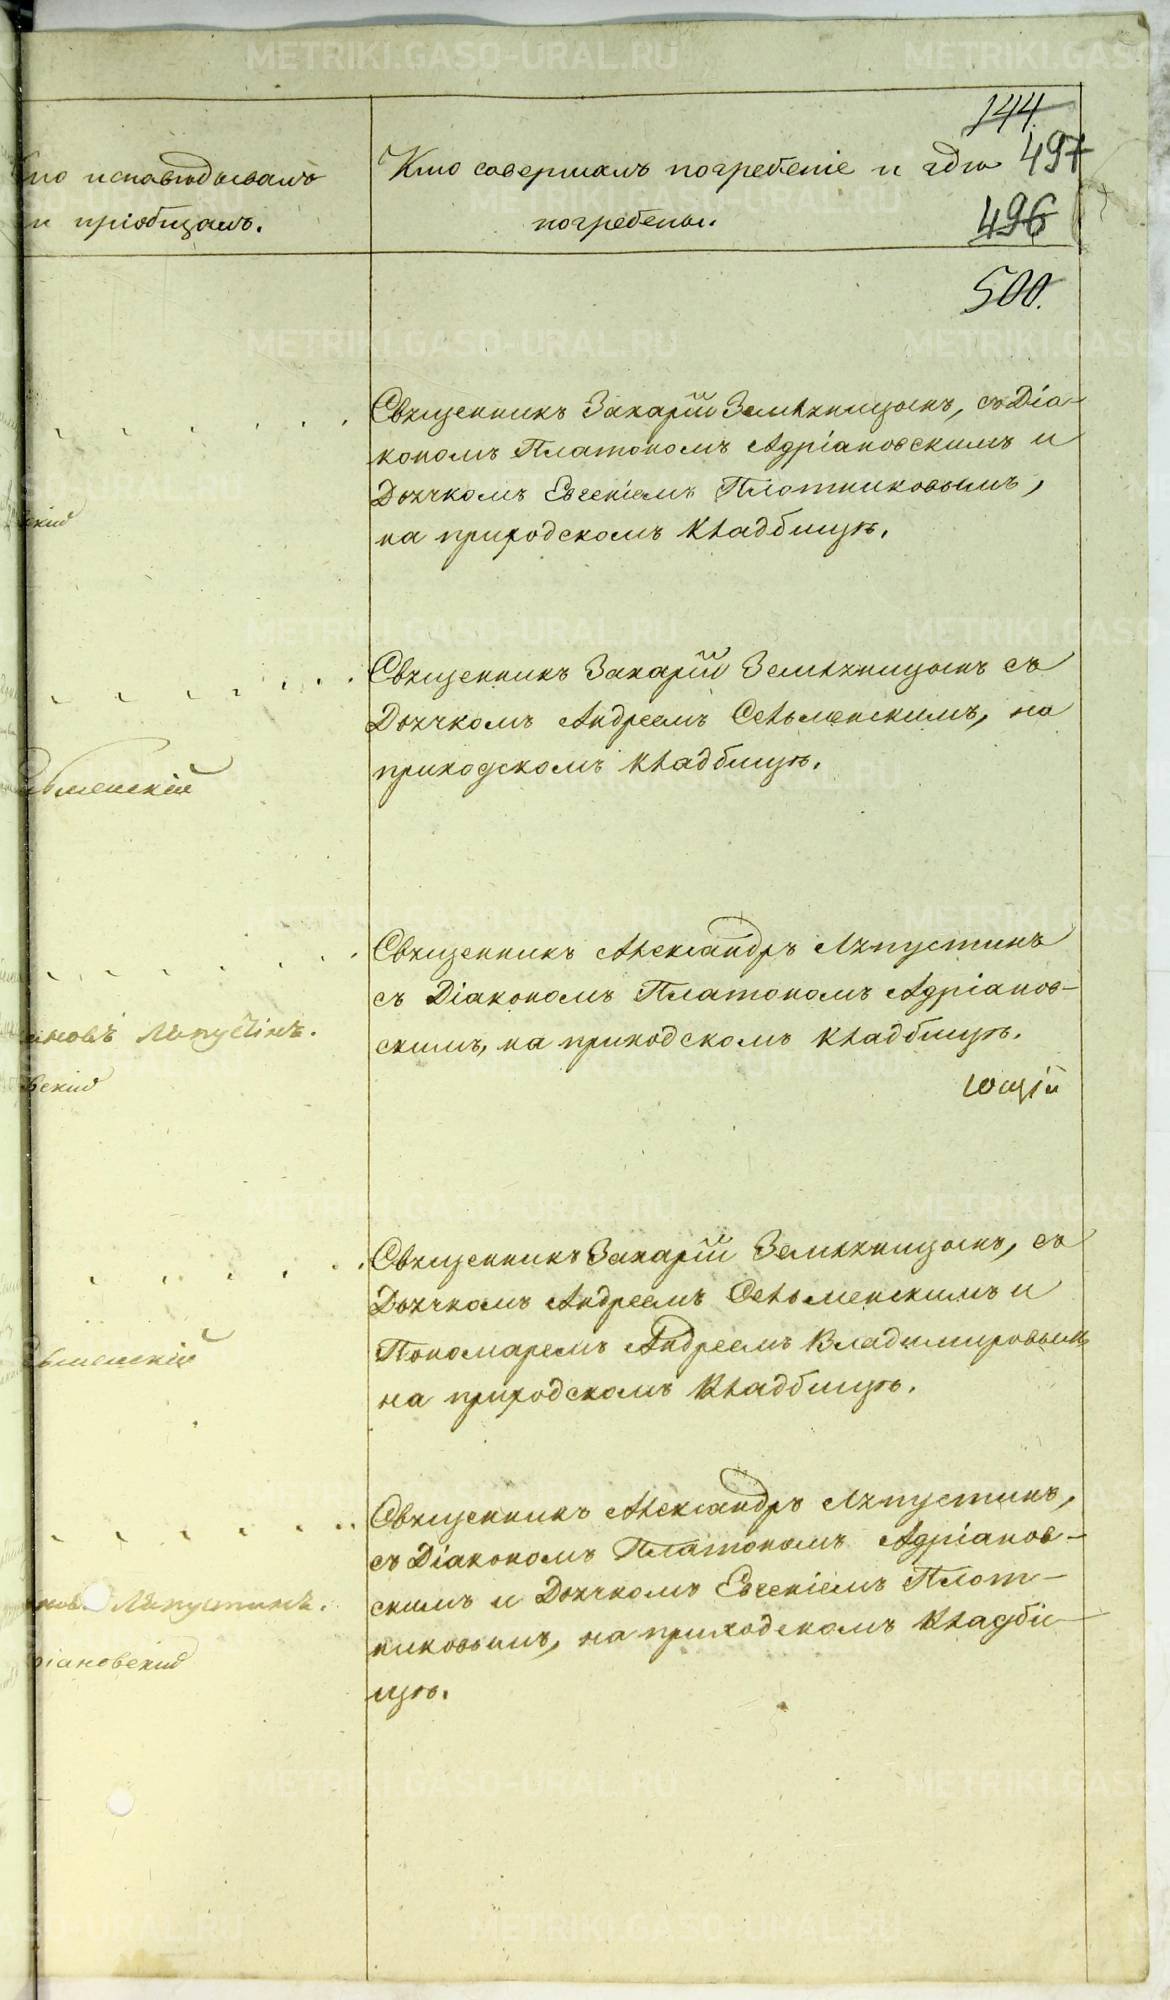 144.
497
496
500.
исповѣдывалъ
и пріобщалъ.
Кто совершалъ погребеніе и гдѣ
погребены.
Священникъ Захарій Земляницынъ, съ Діа-
кономъ Платономъ Адріановскимъ и
Дьячкомъ Евгеніемъ Плотниковымъ,
на приходскомъ кладбищѣ.
Священникъ Захарій Земляницынъ съ
Дьячкомъ Андреемъ Сельменскимъ, на
приходскомъ кладбищѣ.
Священникъ Александръ Ляпустинъ
съ Діакономъ Платономъ Адріанов-
скимъ, на приходскомъ кладбищѣ.
Ляпустинъ.
ющій
Священникъ Захарій Земляницынъ, съ
Дьячкомъ Андреемъ Сельменскимъ и
Пономаремъ Андреемъ Владимировымъ
на приходскомъ кладбищѣ.
Священникъ Александръ Ляпустинъ,
съ Діакономъ Платономъ Адріанов-
скимъ и Дьячкомъ Евгеніемъ Плот-
никовымъ, на приходскомъ кладби-
щѣ.
Ляпустинъ.
METRIKI.GASO-URAL.RU